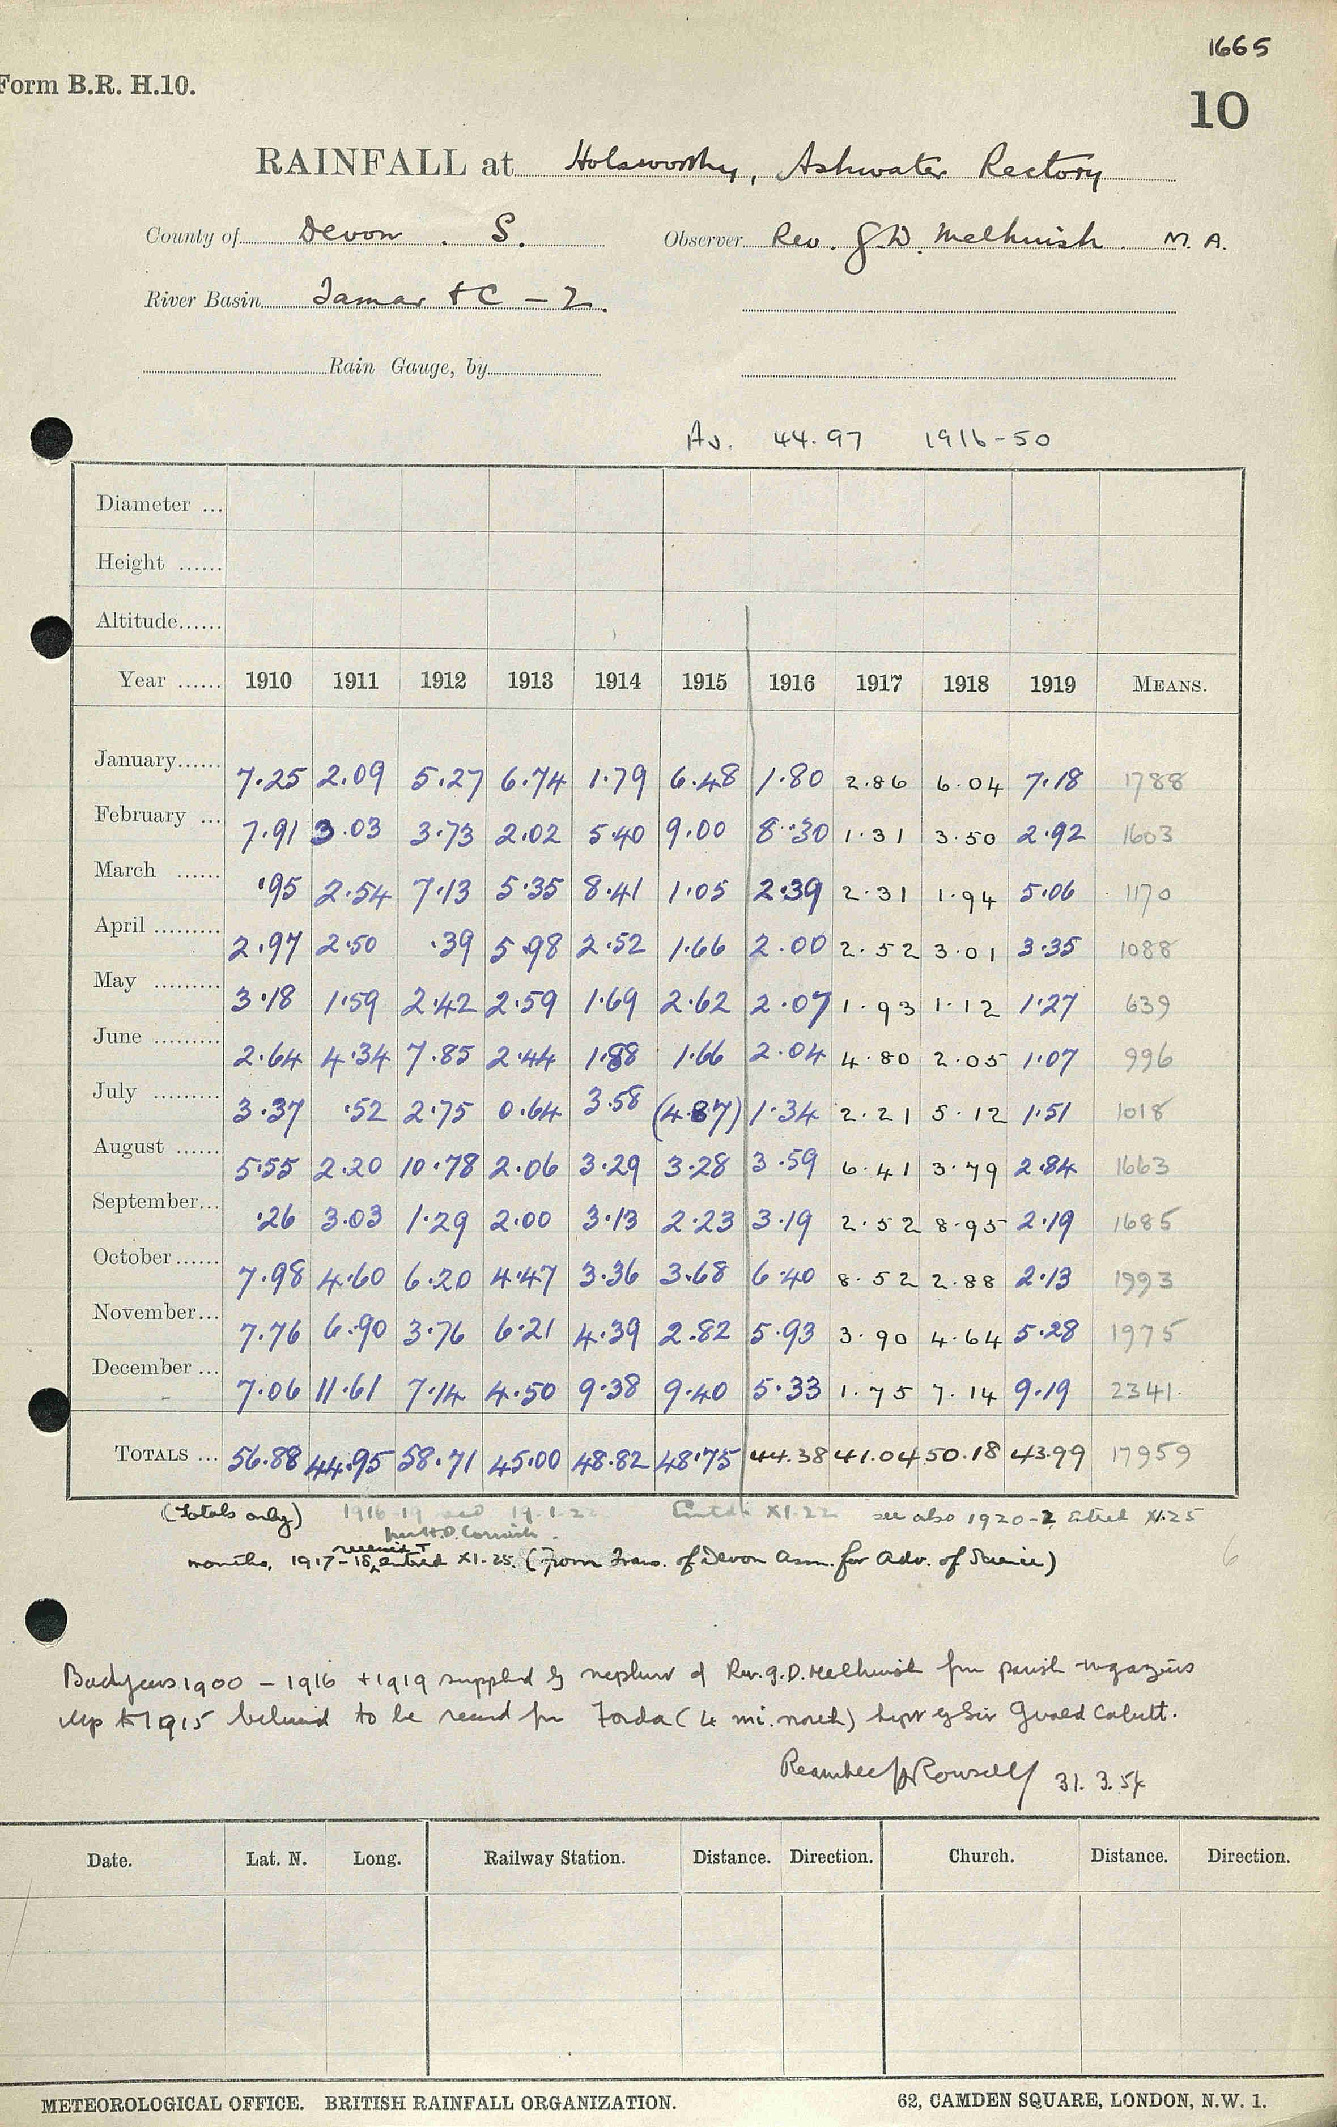 1665
Form B.R. H.10.
10
RAINFALL at Holsworthy, Ashwater Rectory
County of Devon . S. Observer Rev. G.D. Melhuish. M.A.
River Basin Tamar + C - 2.
Rain Gauge, by
Av. 44.97 1916-50
Diameter ...
Height ......
Altitude......
Year ...... 1910 1911 1912 1913 1914 1915 1916 1917 1918 1919 MEANS.
January...... 7.25 2.09 5.27 6.74 1.79 6.48 1.80 2.86 6.04 7.18 1788
February ... 7.91 3.03 3.73 2.02 5.40 9.00 8.30 1.31 3.50 2.92 1603
March ...... .95 2.54 7.13 5.35 8.41 1.05 2.39 2.31 1.94 5.06 1170
April ......... 2.97 2.50 .39 5.98 2.52 1.66 2.00 2.52 3.01 3.35 1088
May ......... 3.18 1.59 2.42 2.59 1.69 2.62 2.07 1.93 1.12 1.27 639
June ......... 2.64 4.34 7.85 2.44 1.88 1.66 2.04 4.80 2.05 1.07 996
July ......... 3.37 .52 2.75 0.64 3.58 (4.87) 1.34 2.21 5.12 1.51 1018
August ...... 5.55 2.20 10.78 2.06 3.29 3.28 3.59 6.41 3.79 2.84 1663
September... .26 3.03 1.29 2.00 3.13 2.23 3.19 2.52 8.95 2.19 1685
October...... 7.98 4.60 6.20 4.47 3.36 3.68 6.40 8.52 2.88 2.13 1993
November... 7.76 6.90 3.76 6.21 4.39 2.82 5.93 3.90 4.64 5.28 1975
December ... 7.06 11.61 7.14 4.50 9.38 9.40 5.33 1.75 7.14 9.19 2341
TOTALS ... 56.88 44.95 58.71 45.00 48.82 48.75 44.38 41.04 50.18 43.99 17959
(totals only) 1916-19 19.1.22 XI.22 see also 1920-2 Entred XI.25
per H.D. Cornish.
received +
months, 1917-18, entred XI.25. (From Trans. of Devon Assn. for Adv. of Science) 6
Back years 1900 - 1916 + 1919 supplied by nephew of Rev. G.D. Melhuish from parish magazines
Up to 1915 believed to be record for Forda (4 mi. north) kept by Sir
Rowsell 31.3.54
Date. Lat. N. Long. Railway Station. Distance. Direction. Church. Distance. Direction.
METEOROLOGICAL OFFICE. BRITISH RAINFALL ORGANIZATION. 62, CAMDEN SQUARE, LONDON, N.W. 1.